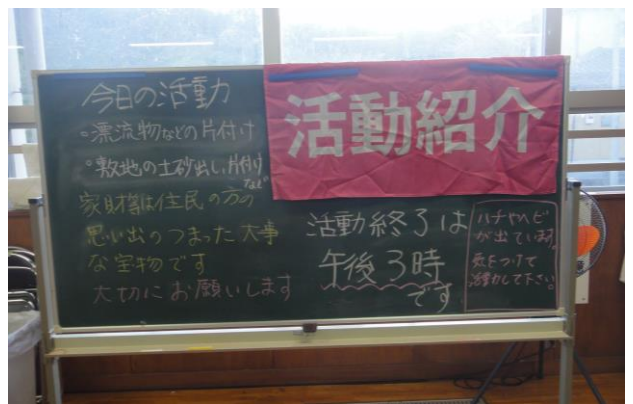 今日の活動
・漂流物などの片付け
・敷地の土砂出し、片付け
など
家財等は住民の方の
思い出のつまった大事
な宝物です
大切にお願いします
活動紹介
活動終了は
午後3時
です
ハチやヘビ
が出ています。
気をつけて
活動して下さい。